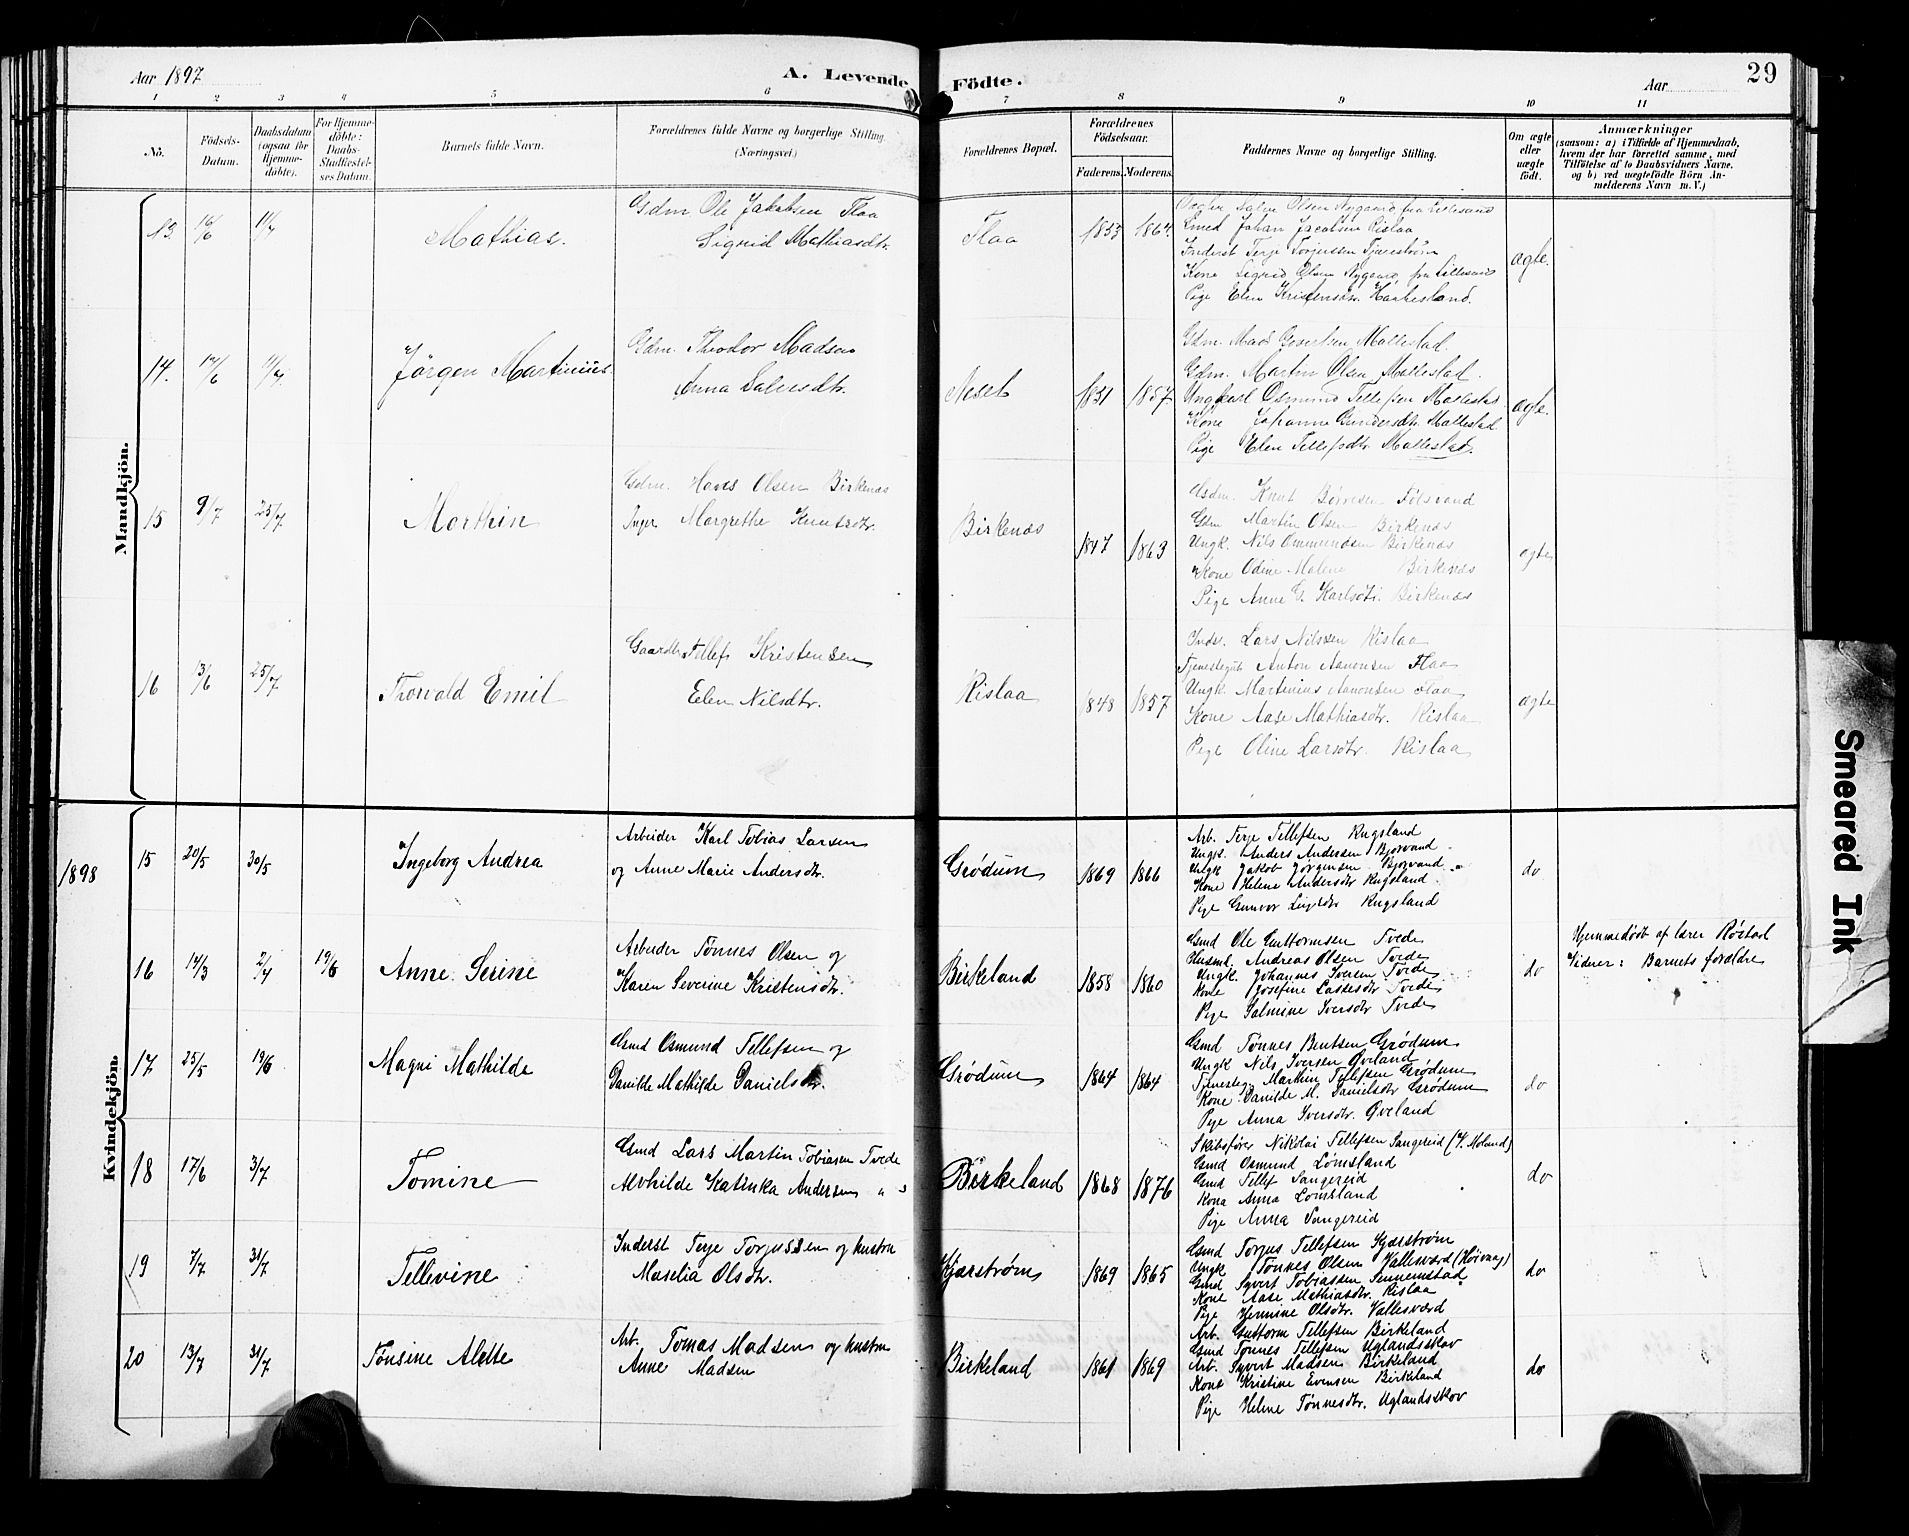 Aar 1897
A. Levende Födte.
Aar
29
1 2 3 4 5 6 7 8 9 10 11
No.
Födsels-Datum.
Daabsdatum (ogsaa for Hjemme-döbte).
For Hjemme-döbte: Daabs-Stadfæstel-ses Datum.
Barnets fulde Navn.
Forældrenes fulde Navne og borgerlige Stilling. (Næringsvei.)
Forældrenes Bopæl.
Forældrenes Födselsaar.
Faderens. Moderens.
Faddernes Navne og borgerlige Stilling.
Om ægte eller uægte födt.
Anmærkninger
(saasom: a) i Tilfælde af Hjemmedaab, hvem der har forrettet samme, med Tilföielse af to Daabsvidners Navne, og b) ved uægtefödte Börn An-melderens Navn m. V.)
Mandkjön.
13. 16/6 11/7
Mathias.
Gdm Ole Jakobsen Flaa
Sigrid Mathiasdtr.
Flaa
1853 1864.
Olsen Nygaard fra Lillesand
Smed Johan Jacobsen Rislaa
Inderst Terje Torjussen Kjærstrøm
Kone Sigrid Olsen Nygaard fra Lillesand
Pige Elen Kristensdtr. Haabesland.
ægte.
14. 14/6 11/7.
Jörgen Martinius.
Gdm. Theodor Madsen
Anna Salvesdtr.
Neset
1831 1857
Gdm. Mads Mollestad.
Gdm. Martin Olsen Mollestad.
Ungkarl Osmund Tellefsen Mollestad
Kone Johanne Gundersdtr. Mollestad
Pige Elen Tellefsdtr. Mollestad.
ægte.
15 9/7 25/7
Morthin
Gdm. Hans Olsen Birkenæs
Inger Margrethe Knutsdtr.
Birkenæs
1847 1863
Gdm. Knut Börresen Fölsvand
Gdm Martin Olsen Birkenæs
Ungk. Nils Ommundsen Birkenæs
Kone Odine Malene Birkenæs
Pige Anne G. Karlsdtr. Birkenæs
ægte
16 13/6 25/7
Thorvald Emil
Gaardbr. Tellef Kristensen
Elen Nilsdtr.
Rislaa
1848 1857
Inds. Lars Nilssen Rislaa
Tjenestegut Anton Aanonsen Flaa
Ungk. Martinius Aanonsen Flaa
Kone Aase Mathiasdtr. Rislaa
Pige Oline Larsdtr. Rislaa
ægte
1898
Kvindekjön.
15 20/5 30/5
Ingeborg Andrea
Arbeider Karl Tobias Larsen
og Anne Marie Andersdtr.
Grødum
1869 1866
Arb. Terje Tellefsen Rugsland
Ungk. Anders Andersen Bjorvand
Ungk Jakob Jörgensen Bjorvand
Kone Helene Andersdtr Rugsland
Pige Gunvor Rugsland
do
16 14/3 2/4 19/6
Anne Serine
Arbeider Tönnes Olsen og
Karen Severine Kristensdtr.
Birkeland
1858 1860
Gmd Ole Guttormsen Tvede
Husmd. Andreas Olsen Tvede
Ungk. Johannes Iversen Tvede
Kone Josefine Lassesdtr Tvede
Pige Salmine Iversdtr Tvede
do
Hjemmedøbt af lærer Røstad
Vidner: Barnets forældre
17 25/5 19/6
Magni Mathilde
Gmd Osmund Tellefsen og
Danilde Mathilde Danielsdtr.
Grødum
1864 1864
Gmd Tønnes Bentsen Grødum
Ungk Nils Iversen Øveland
Tjenesteg. Marthin Tellefsen Grødum
Kone Danilde M. Danielsdtr Grødum
Pige Anna Iversdtr. Øveland
do
18 17/6 3/7
Tomine
Gmd Lars Martin Tobiasen Tvede
Alvhilde Katinka Andersen " "
Birkeland
1868 1876
Skibsfører Nikolai Tellefsen Sangereid (V. Moland)
Gmd Osmund Lömsland
Gmd Tellef Sangereid
Kona Anna Lömsland
Pige Anna Sangereid
do
19 7/7 31/7
Tellevine
Inderst Terje Torjussen og hustru
Maselia Olsdtr.
Kjærstrøm
1869 1865
Gmd Torjus Tellefsen Kjærstrøm
Ungk Tönnes Olsen Vallesværd (Høivaag)
Gmd Syvert Tobiassen Sennemstad
Kone Aase Mathiasdtr. Rislaa
Pige Hermine Olsdtr. Vallesværd
do
20 13/7 31/7
Tønsine Alette
Arb. Tomas Madsen og hustru
Anne Madsen
Birkeland
1861 1869
Arb. Guttorm Tellefsen Birkeland
Gmd Tønnes Tellefsen Uglandsskov
Arb. Syvert Madsen Birkeland
Kone Kristine Evensen Birkeland
Pige Helene Tønnesdtr. Uglandsskov
do
Smeared Ink